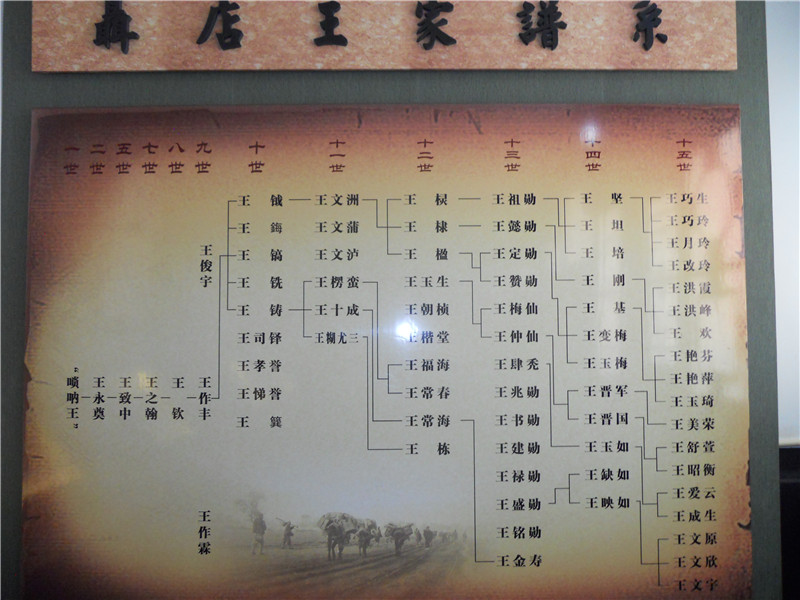 聶店王家譜系
一世 二世 五世 七世 八世 九世 十世 十一世 十二世 十三世 十四世 十五世
"唢呐王"
王永奠
王致中
王之翰
王钦
王俊宇
王作丰
王作霖
王钺
王鋂
王镐
王铣
王铸
王司铎
王孝誉
王悌誉
王文洲
王文蒲
王文泸
王楞蛮
王十成
王糊尤三
王棣
王楹
王玉生
王朝桢
王楷堂
王福海
王常春
王常海
王栋
王祖勋
王懿勋
王定勋
王赞勋
王梅仙
王仲仙
王肆秃
王兆勋
王书勋
王建勋
王禄勋
王盛勋
王铭勋
王金寿
王坚
王坦
王培
王刚
王基
王变梅
王玉梅
王晋军
王晋国
王玉如
王缺如
王映如
王巧生
王巧玲
王月玲
王改玲
王洪霞
王洪峰
王欢
王艳芬
王艳萍
王玉琦
王美荣
王舒萱
王昭衡
王爱云
王成生
王文原
王文欣
王文宇